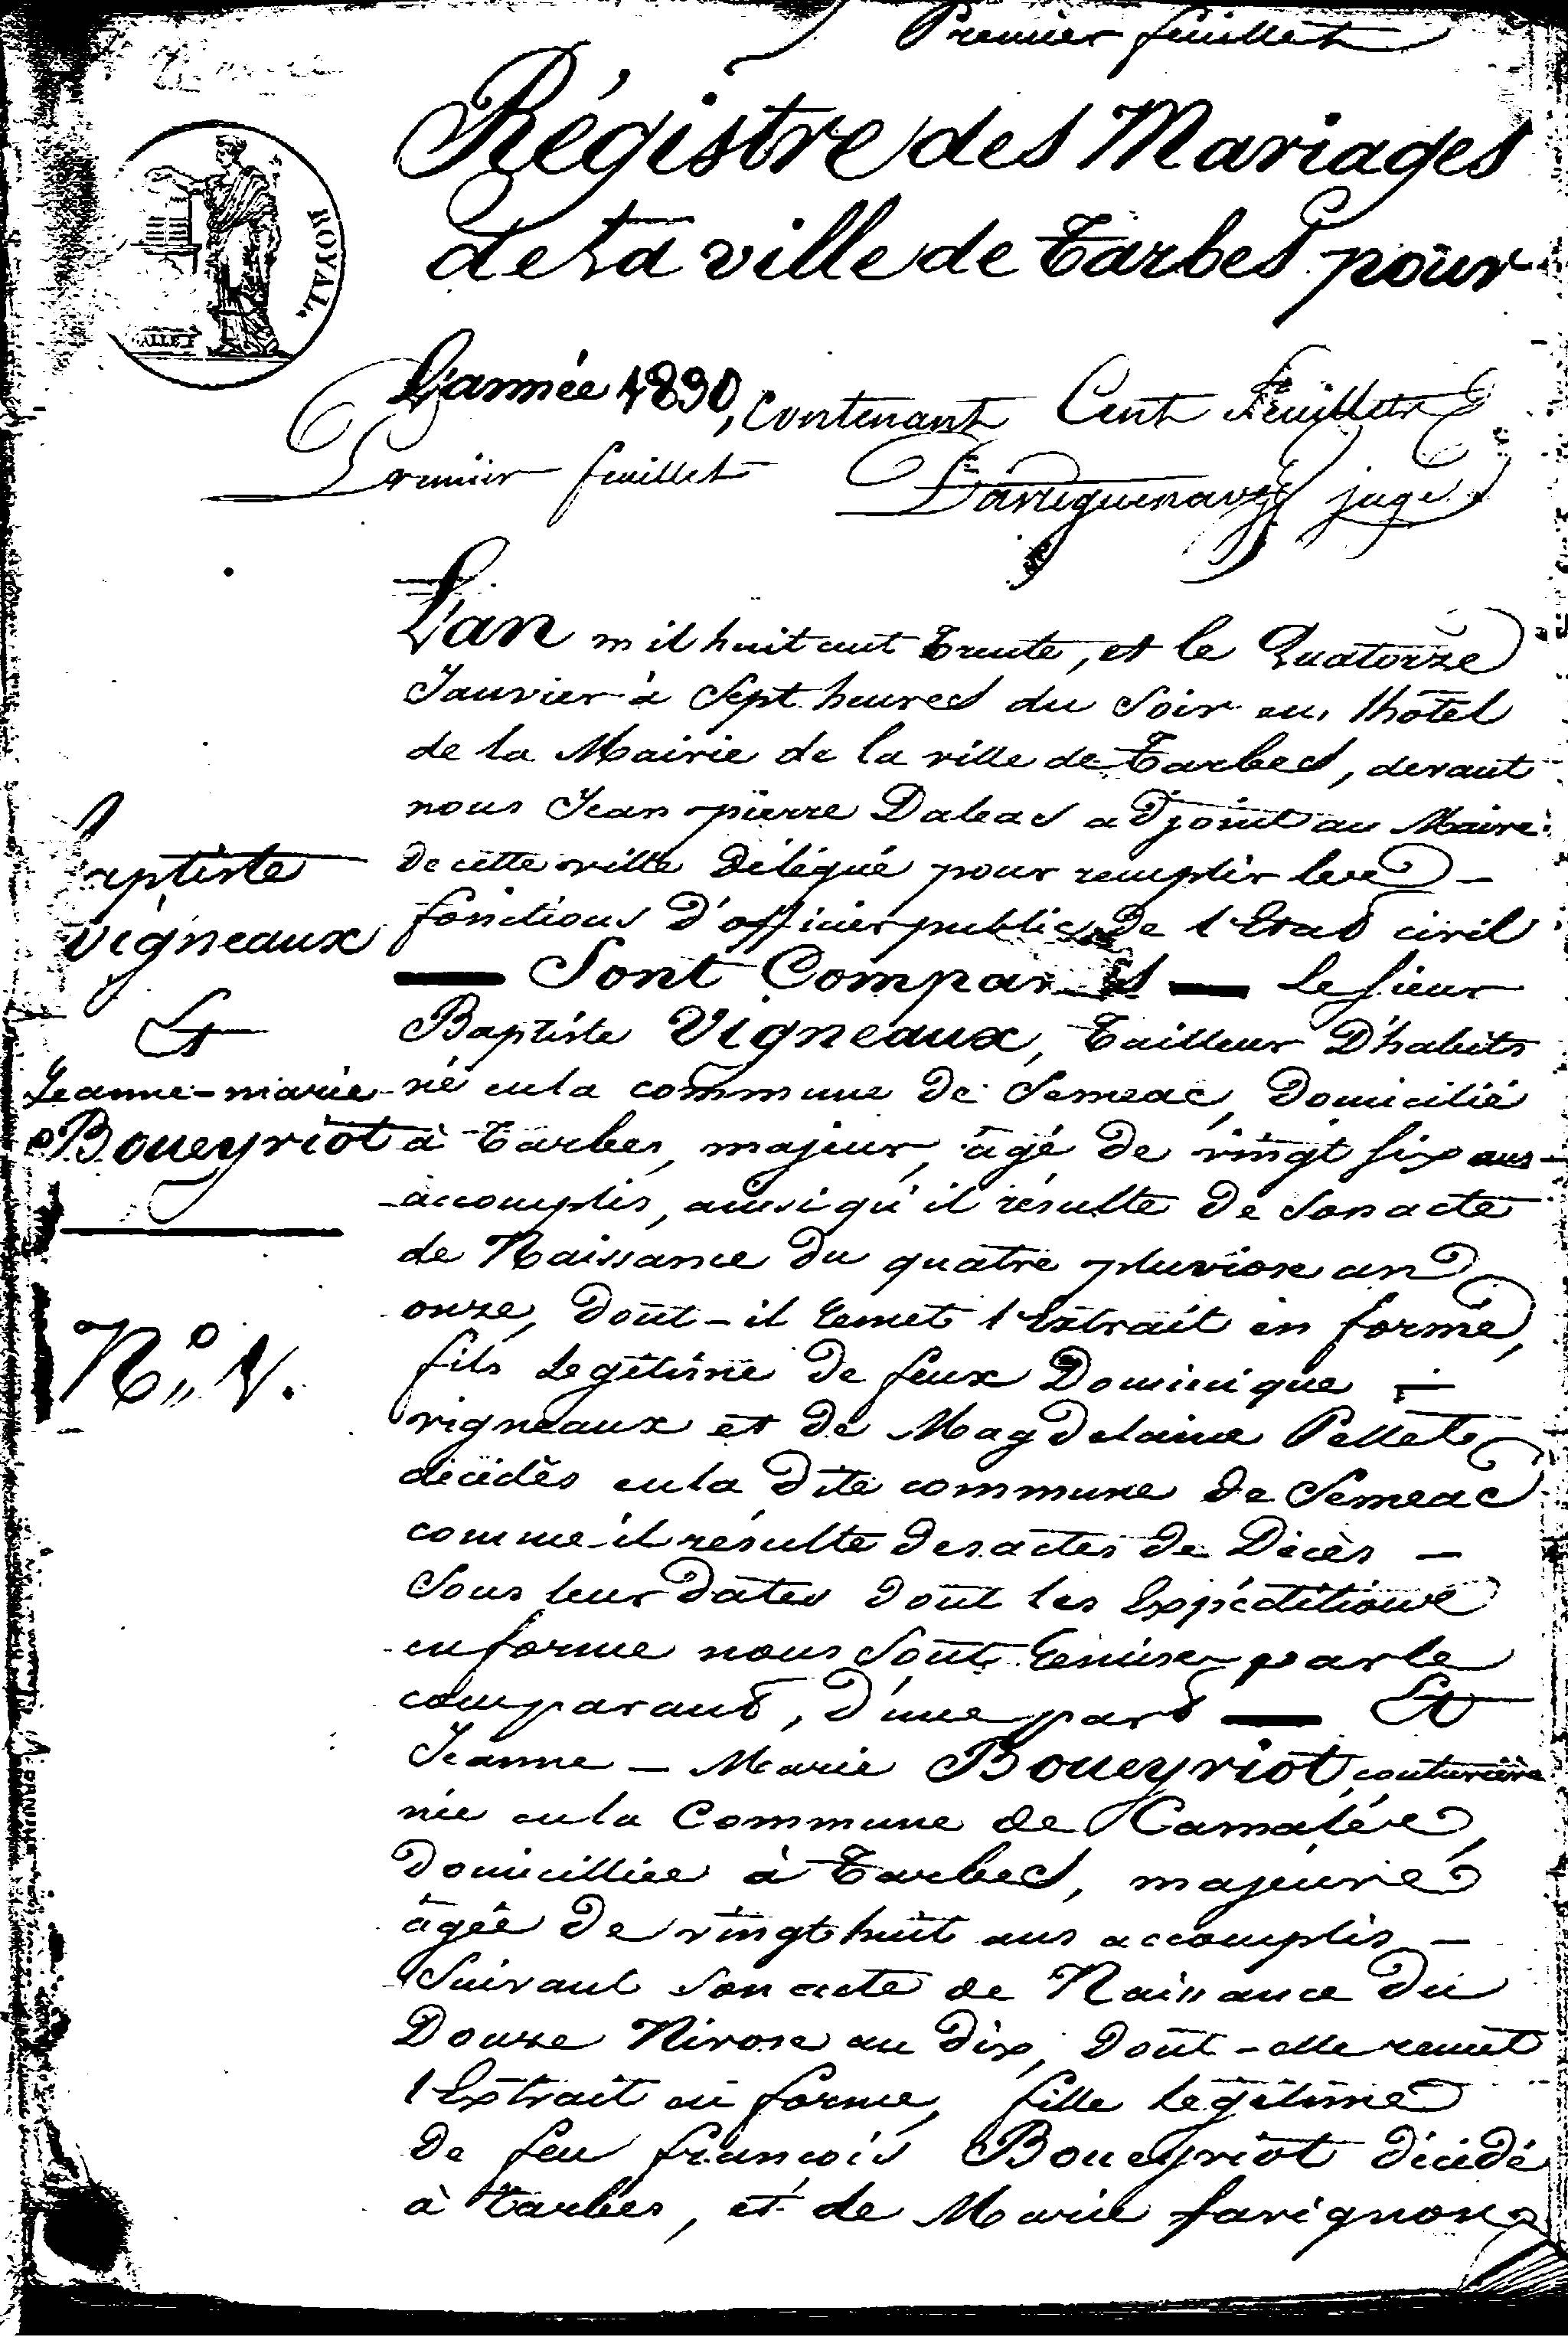 Premier feuillet
Régistre des Mariages
de la ville de Tarbes pour
ROYAL.
L'année 1830, contenant Cent feuillets
Premier feuillet juge
L'an mil huit cent trente, et le Quatorze
Janvier à Sept heures du Soir en l'hôtel
de la Mairie de la ville de Tarbes, devant
nous Jean pierre Daleas adjoint au Maire
de cette ville délégué pour remplir les
fonctions d'officier public de l'Etat civil
Sont Comparus le sieur
Baptiste Vigneaux, Tailleur D'habits
né en la commune de Semeac, Domicilié
à Tarbes, majeur, âgé de vingt six ans
accomplis, ainsi qu'il résulte de son acte
de Naissance du quatre pluviose an
onze, dont-il remet l'Extrait en forme,
fils Legitime de feux Dominique
vigneaux et de Magdelaine Pellet
décédés en la dite commune de Semeac
comme-il résulte des actes de Décès
Sous leur dates dont les Expéditions
en forme nous sont remises par le
comparant, d'une part Et
Jeanne-Marie Boueyriot, couturière
née en la Commune de Camalés,
Domicilliée à Tarbes, majeure
âgée de vingt huit ans accomplis
Suivant son acte de Naissance du
Douze Nivose an dix, Dont-elle remet
l'Extrait en forme, fille Legitime
de feu françois Boueyriot décédé
à Tarbes, et de Marie farignon
Baptiste
Vigneaux
Et
Jeanne-marie
Boueyriot
N.° 1.